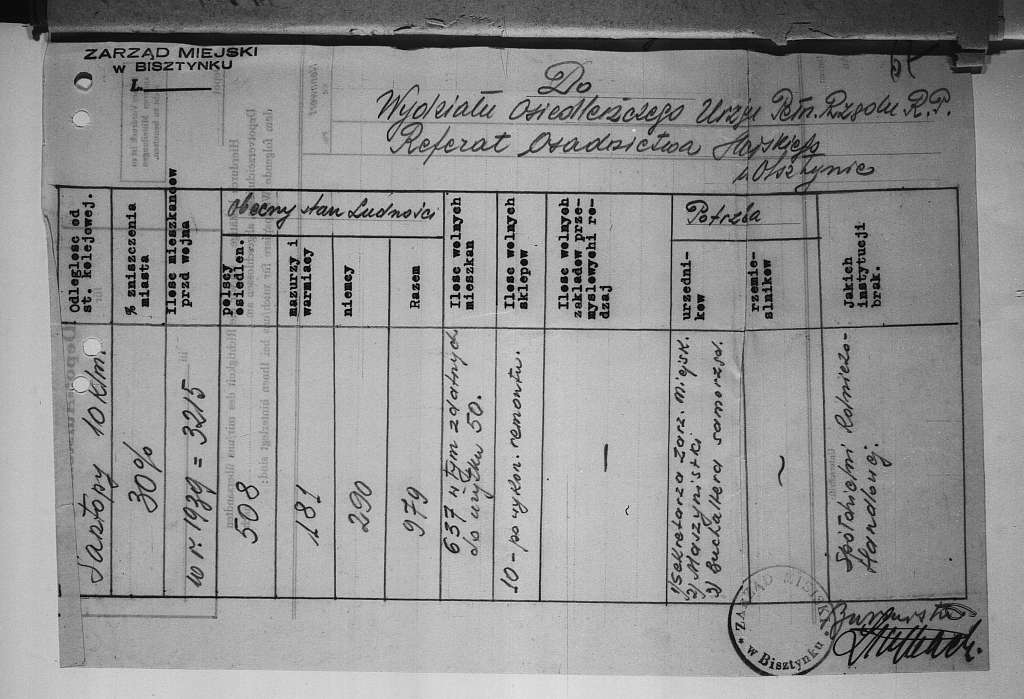 ZARZĄD MIEJSKI
W BISZTYNKU
L.
Do
Wydziału Osiedleńczego Urzęu Pełn. Rządu R.P.
Referat Osadnictwa Miejskiego
w Olsztynie
Odleglesc od
st. kolejowej.
% zniszczenia
miasta
Ilesc mieszkancew
przd wojna
Obecny stan Ludności
pelscy
esiedlen.
mazurzy i
warmiacy
niemcy
Razem
Ilesc welnych
mieszkan
Ilesc welnych
sklepew
Ilesc welnych
zakladew prze-
myslewychi re-
dzaj
Potrzba
urzedni-
kew
rzemie-
slnikew
Jakich
instytucji
brak.
Sątopy 10 klm.
30%
w r. 1939 = 3215
508
181
290
979
637 w tym zdatnych
do użytku 50.
10 - po wykon. remontu.
—
1) Sekretarza Zarz. Miejsk.
2) Maszynistki
3) Buchaltera samorząd.
~
Spółdzielni Rolniczo-
Handlowej.
ZARZĄD MIEJSKI
* w Bisztynku *
Burmistrz